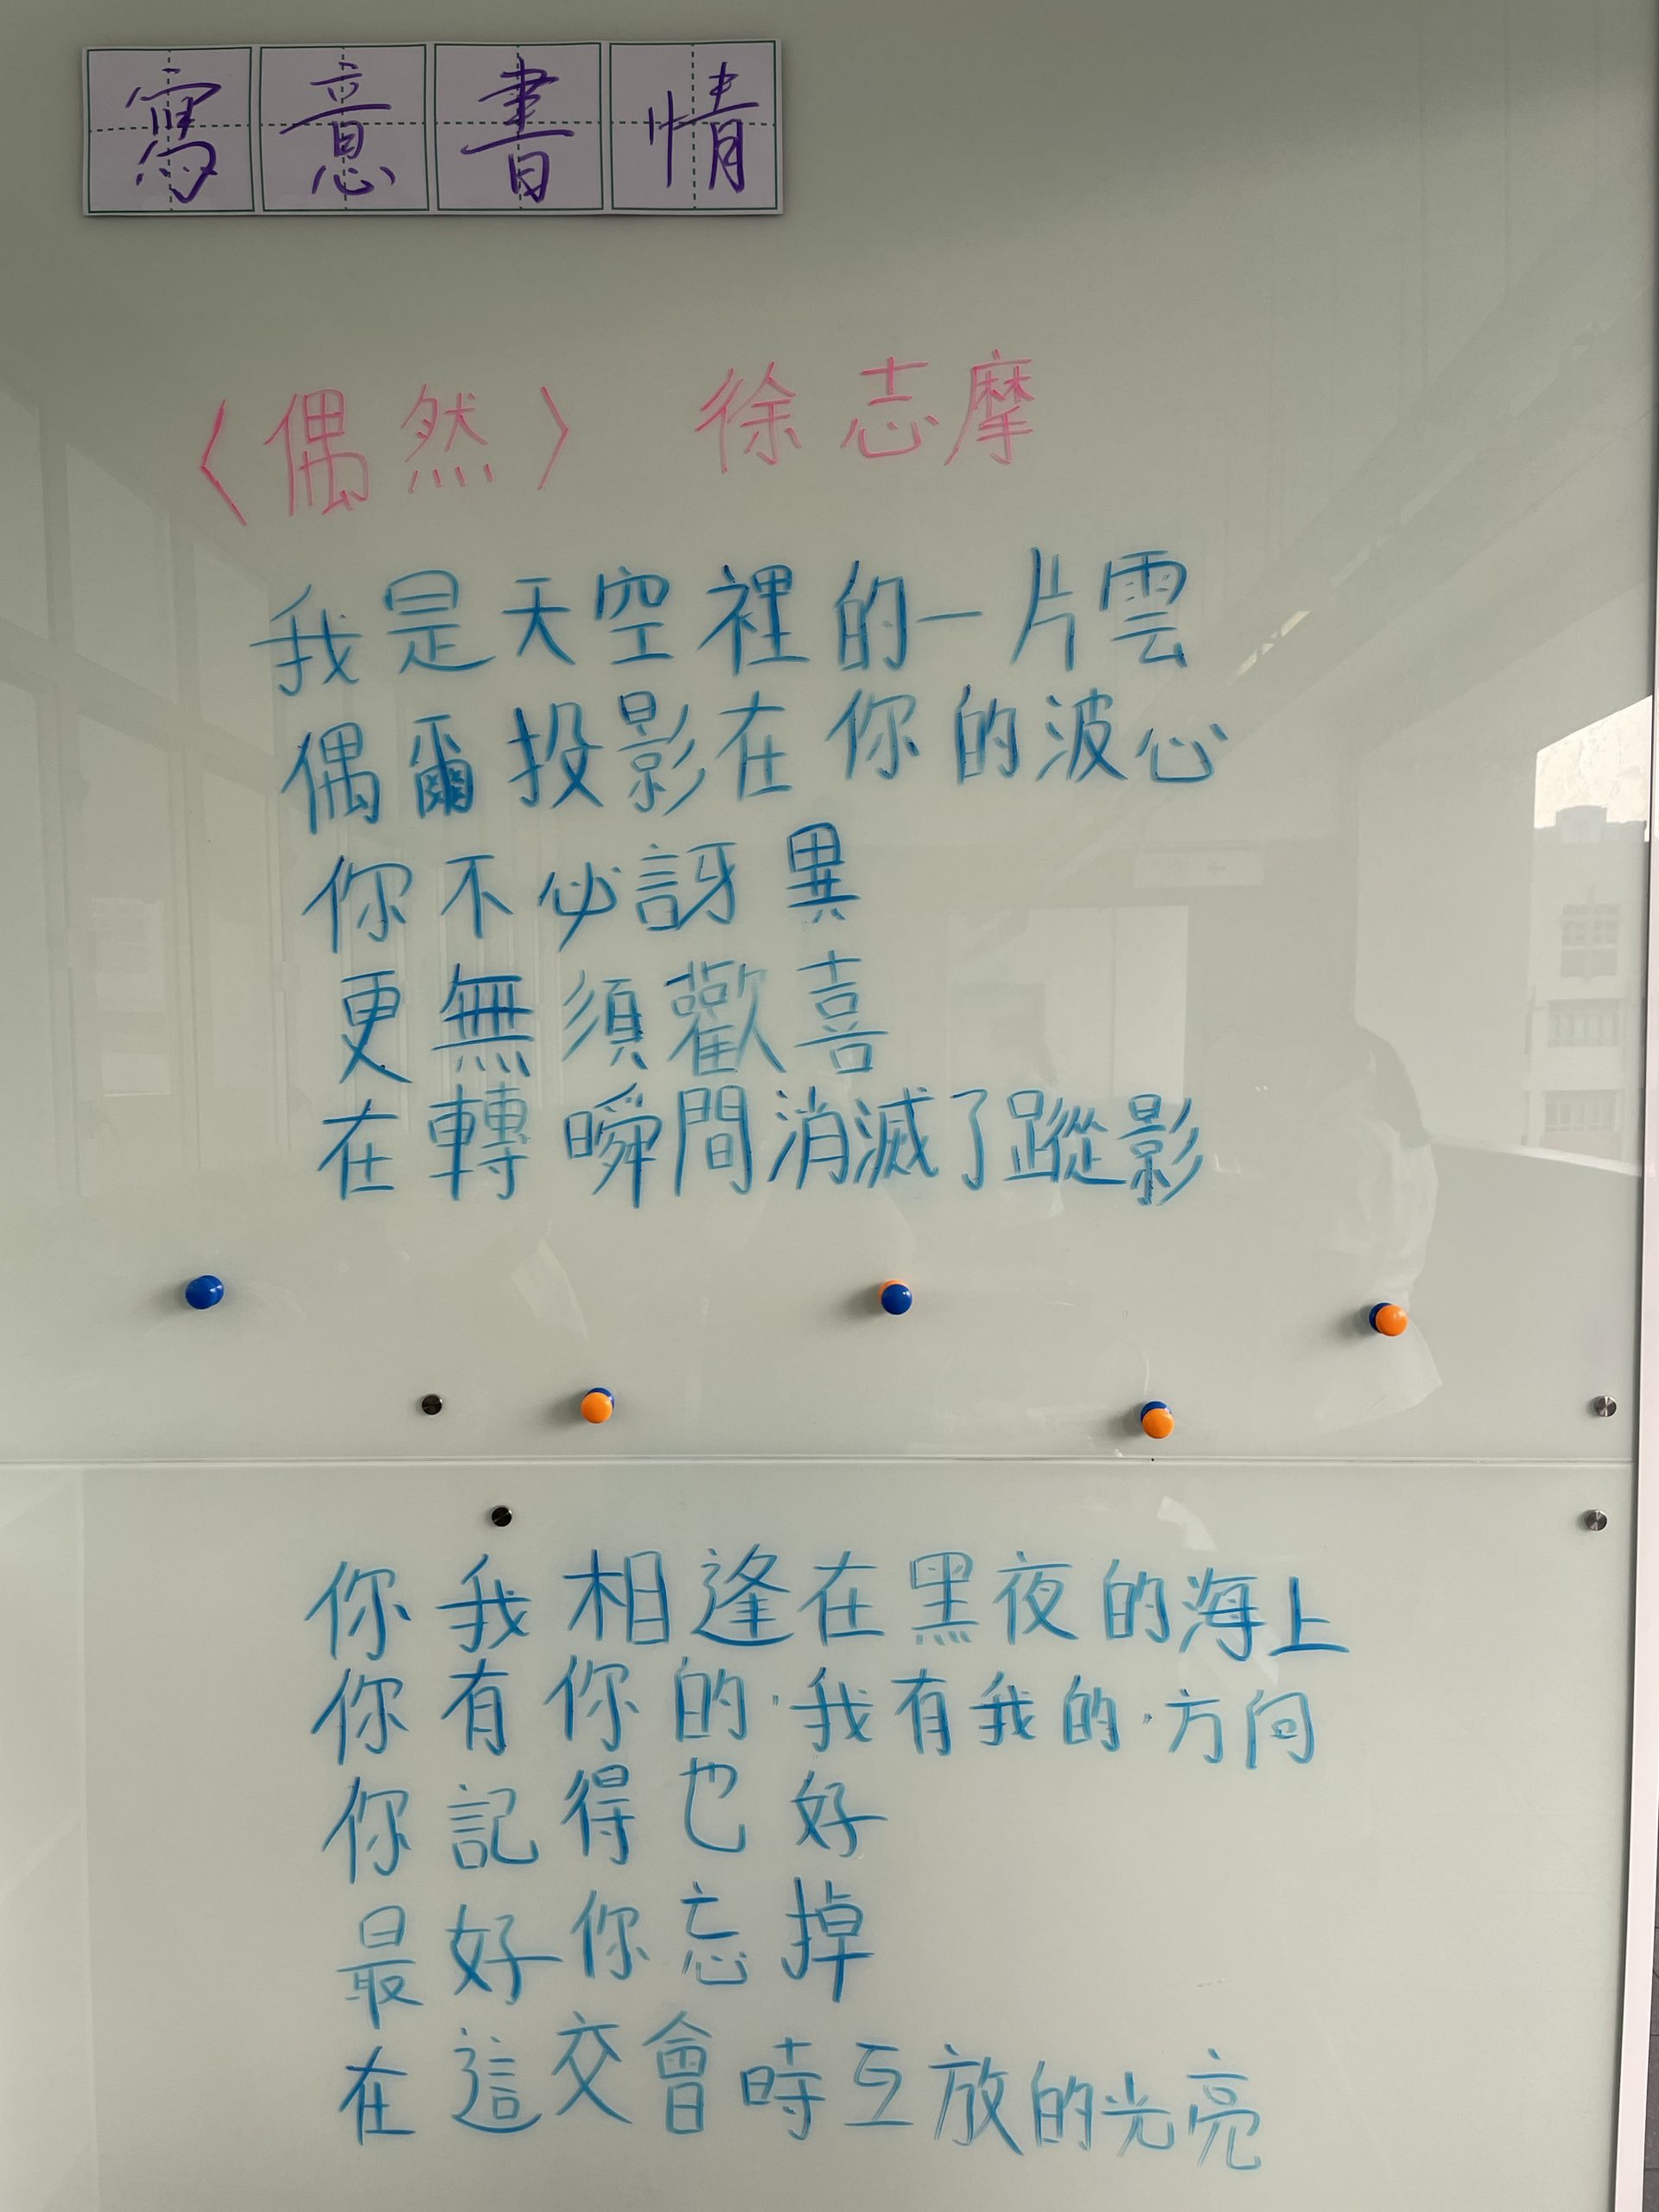 寫意書情
〈偶然〉 徐志摩
我是天空裡的一片雲
偶爾投影在你的波心
你不必訝異
更無須歡喜
在轉瞬間消滅了蹤影
你我相逢在黑夜的海上
你有你的，我有我的，方向
你記得也好
最好你忘掉
在這交會時互放的光亮